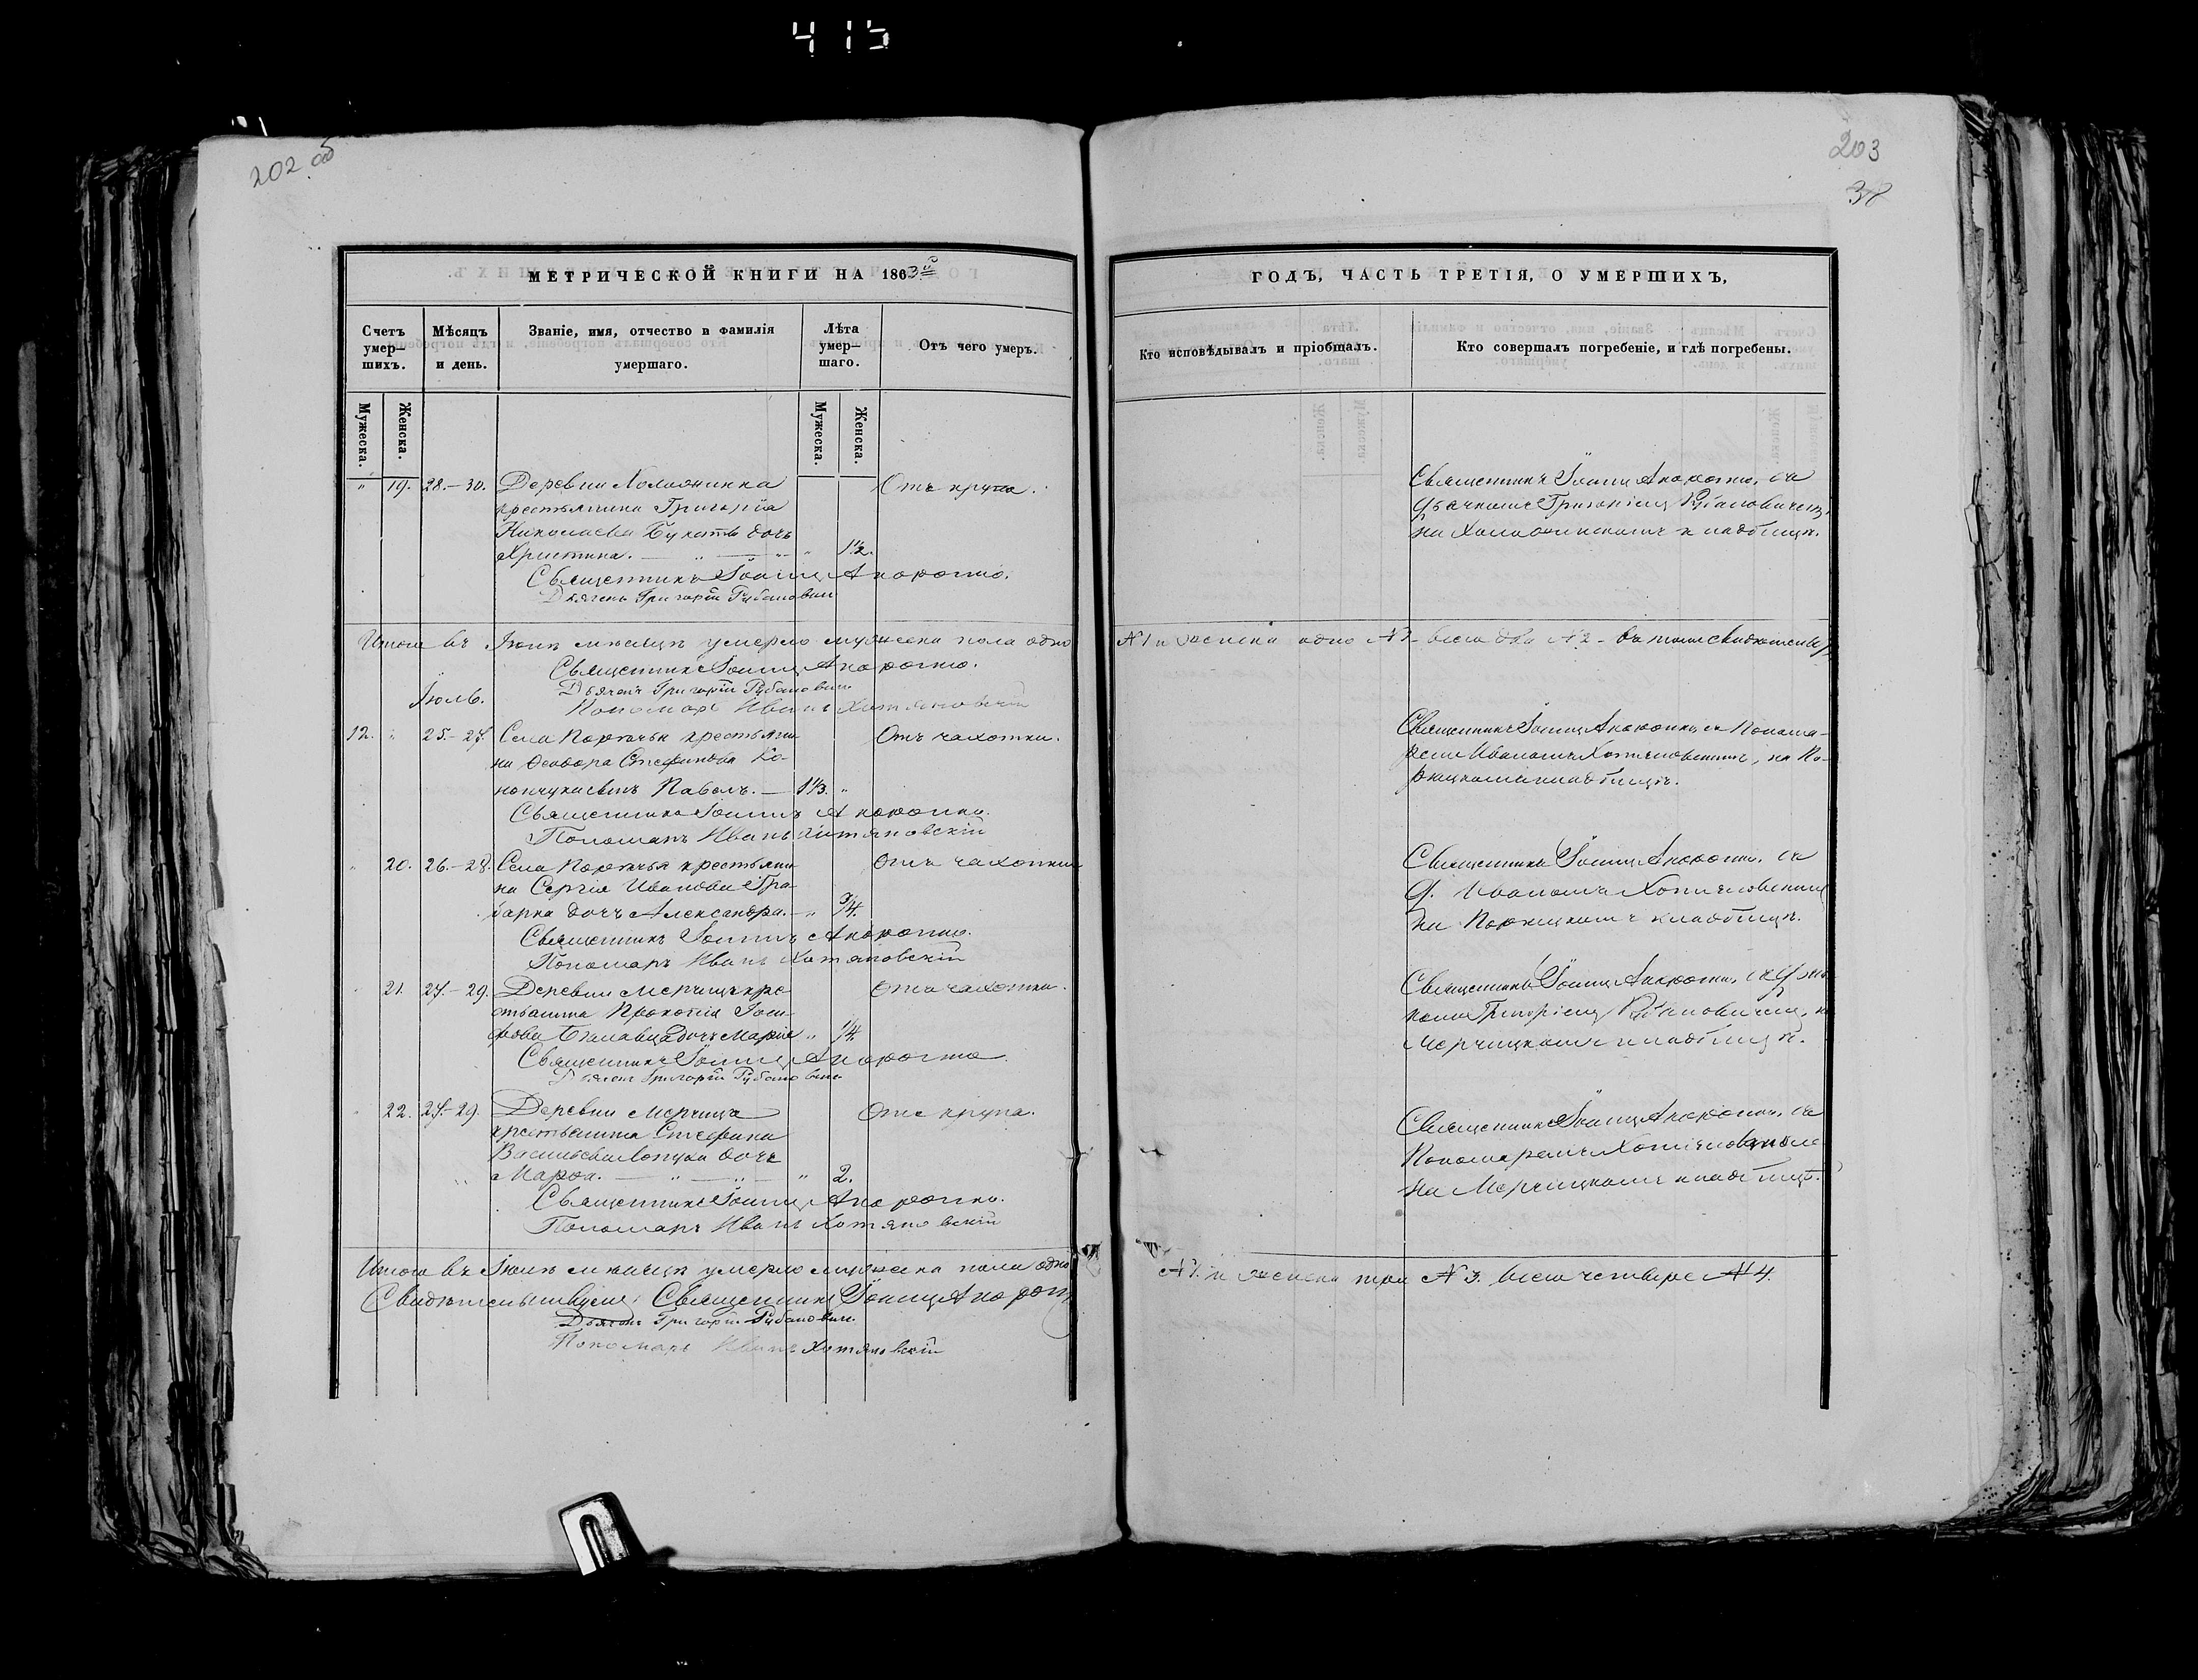 413
202 об
203
38
МЕТРИЧЕСКОЙ КНИГИ НА 1863й
ГОДЪ, ЧАСТЬ ТРЕТІЯ, О УМЕРШИХЪ,
Счетъ умер—шихъ.
Мѣсяцъ и день.
Званіе, имя, отчество и фамилія умершаго.
Лѣта умер—шаго.
Отъ чего умеръ.
Кто исповѣдывалъ и пріобщалъ.
Кто совершалъ погребеніе, и гдѣ погребены.
Мужеска.
Женска.
Мужеска.
Женска.
" 19. 28.–30. Деревни
крестьянина Григорія
Николаева дочь
Христина. " 1½.
Отъ крупа.
Священникъ Іоаннъ съ
Дьячкомъ Григоріемъ Рубановичемъ,
на кладбищѣ.
Священникъ Іоаннъ
Дьячекъ Григорій Рубановичъ
Итого въ Іюнѣ мѣсяцѣ умерло мужеска пола одно
№1 и женска одно №1 – всего два №2 – въ томъ
Священникъ Іоаннъ
Дьячекъ Григорій Рубановичъ
Пономарь Иванъ Хотяновскій
Іюль.
12. " 25.–27. Села Порѣчья крестьяни-
на Ѳеодора Стефанова Ко-
сынъ Павелъ. — 1⅓. "
Отъ чахотки.
Священникъ Іоаннъ съ Понома-
ремъ Иваномъ Хотяновскимъ, на По-
рѣцкомъ кладбищѣ.
Священникъ Іоаннъ
Пономарь Иванъ Хотяновскій
" 20. 26.–28. Села Порѣчья крестьяни-
на Сергія Иванова Гра-
барка дочь Александра. — " ¾.
Отъ чахотки
Священникъ Іоаннъ съ
Иваномъ Хотяновскимъ
на Порѣцкомъ кладбищѣ.
Священникъ Іоаннъ
Пономарь Иванъ Хотяновскій
" 21. 27.–29. Деревни Мерчицъ кре-
стьянина Прокопія Іоси-
фова дочь Марія "
Отъ чахотки.
Священникъ Іоаннъ съ Дьяч-
комъ Григоріемъ Рубановичемъ, на
Мерчицкомъ кладбищѣ.
Священникъ Іоаннъ
Дьячекъ Григорій Рубановичъ
" 22. 27.–29. Деревни Мерчицъ
крестьянина Стефана
Васильева дочь
Марѳа. " 2.
Отъ крупа.
Священникъ Іоаннъ съ
Пономаремъ
на Мерчицкомъ кладбищѣ.
Священникъ Іоаннъ
Пономарь Иванъ Хотяновскій
Итого въ Іюлѣ мѣсяцѣ умерло мужеска пола одно
№1. и женска три №3. всего четверо №4.
Священникъ Іоаннъ
Дьячекъ Григорій Рубановичъ
Пономарь Иванъ Хотяновскій